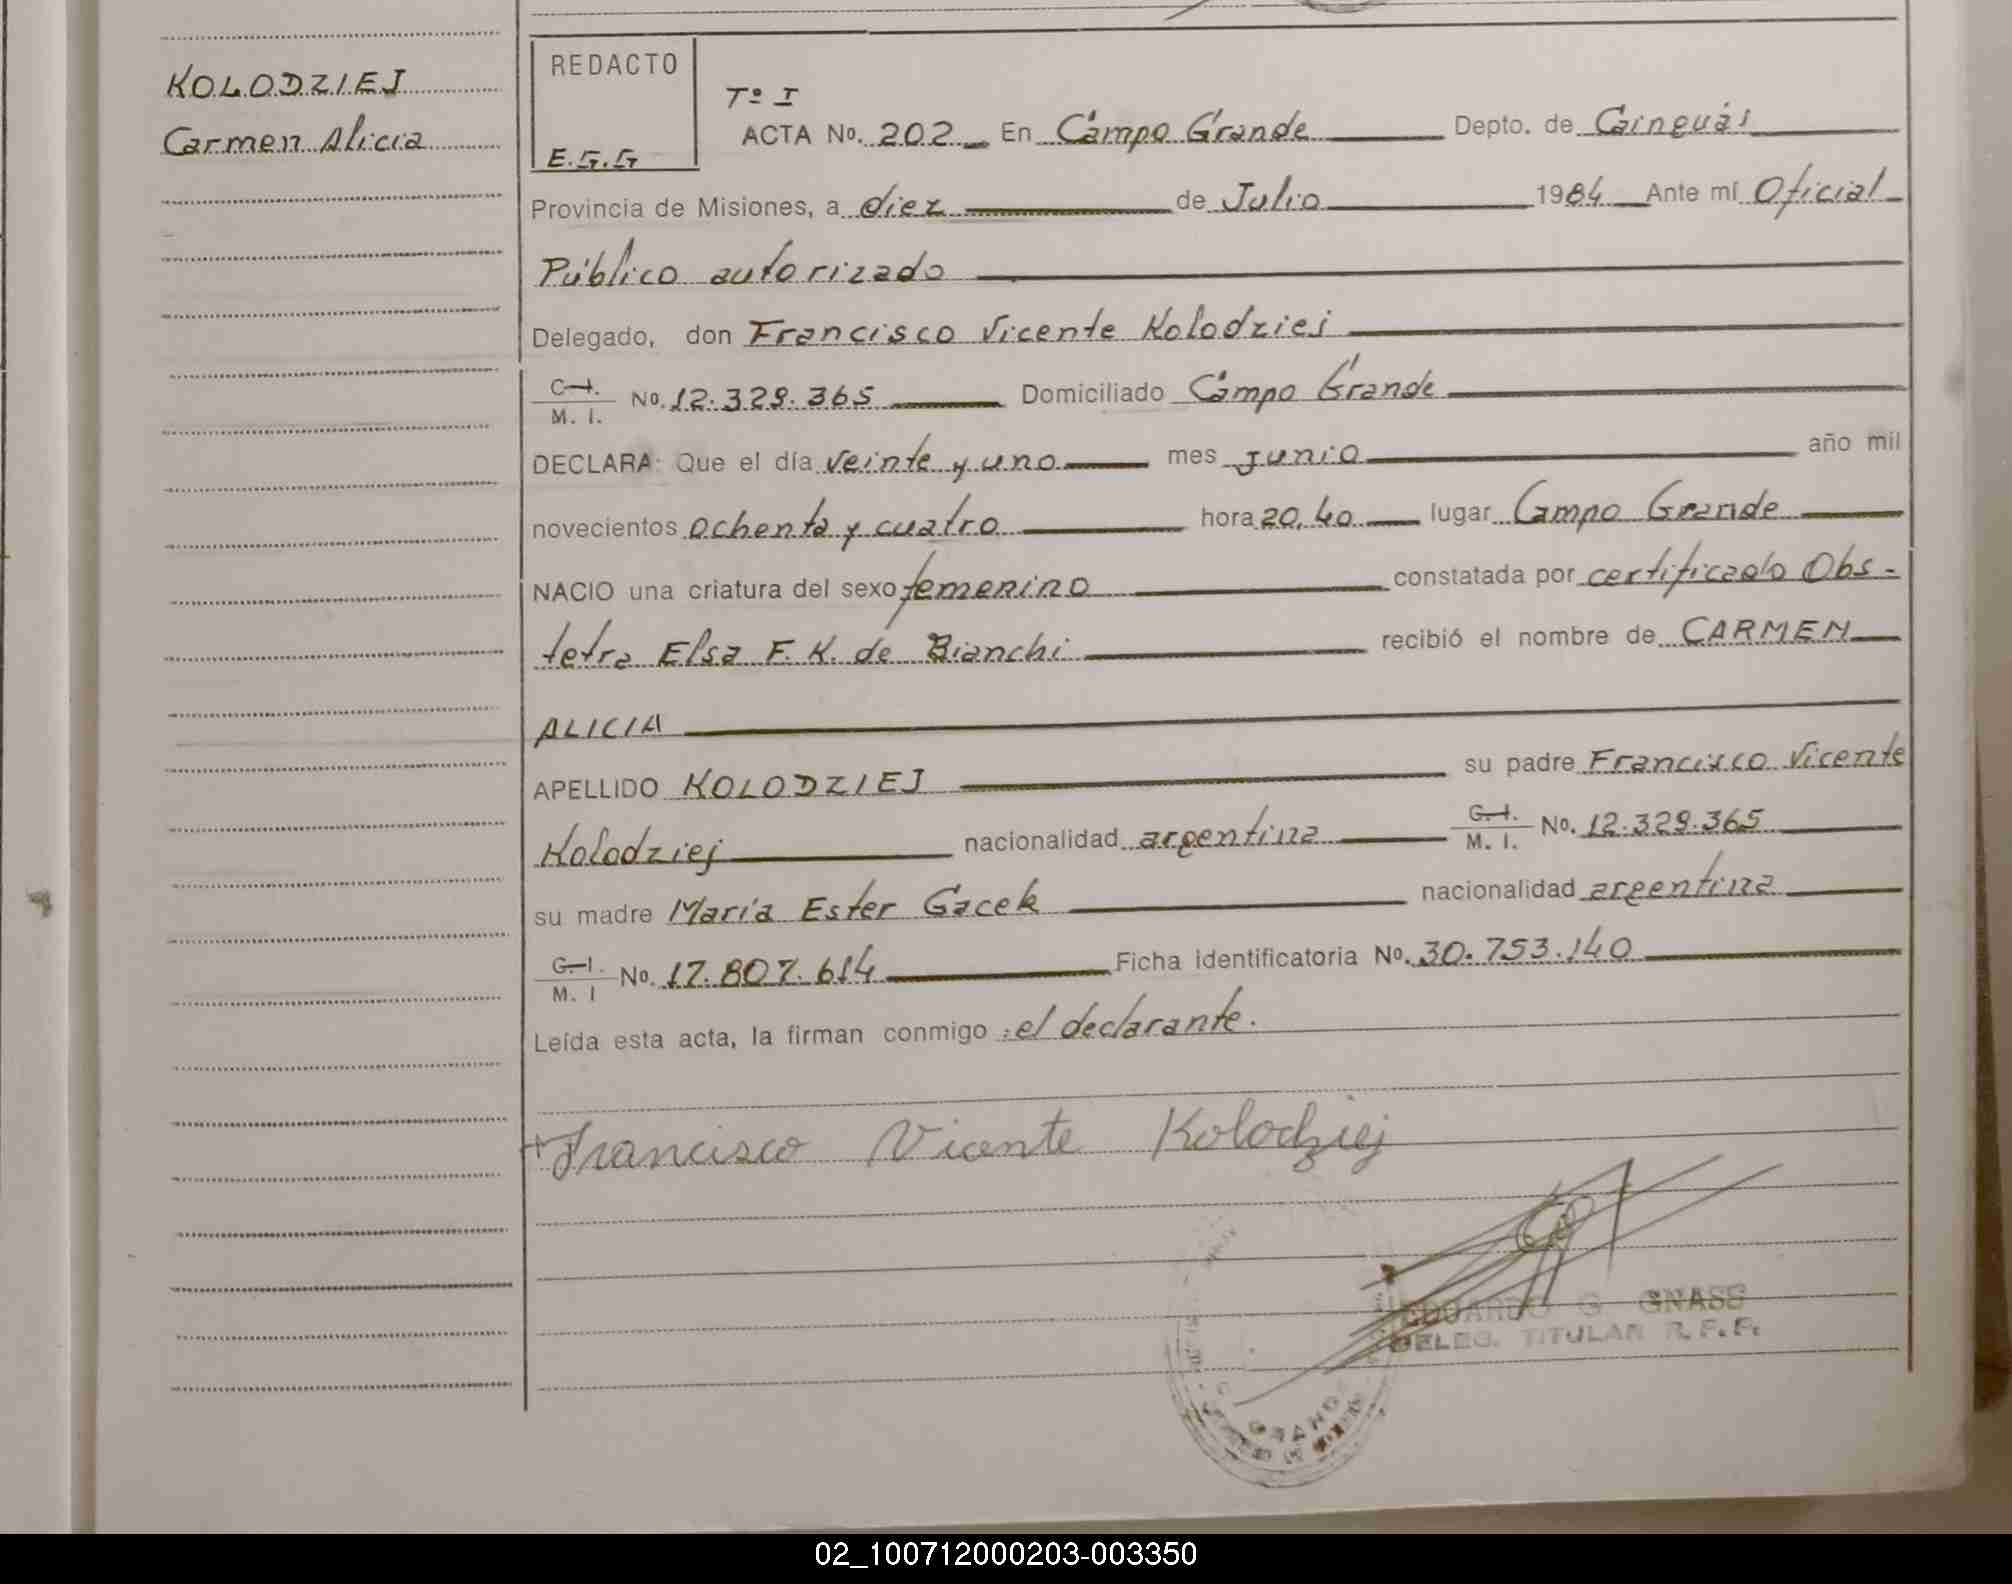 KOLODZIEJ
Carmen Alicia
REDACTO
E.G.G
Tº I
ACTA No. 202 En Campo Grande Depto. de Cainguás
Provincia de Misiones, a diez de Julio 1984 Ante mí Oficial
Público autorizado
Delegado, don Francisco Vicente Kolodziej
C.I. M. I. No. 12.329.365 Domiciliado Campo Grande
DECLARA: Que el día veinte y uno mes junio año mil
novecientos ochenta y cuatro hora 20,40 lugar Campo Grande
NACIO una criatura del sexo femenino constatada por certificado Obs-
tetra Elsa F. K. de Bianchi recibió el nombre de CARMEN
ALICIA
APELLIDO KOLODZIEJ su padre Francisco Vicente
Kolodziej nacionalidad argentina C.I. M. I. No. 12.329.365
su madre María Ester Gacek nacionalidad argentina
C.I. M. I No. 17.807.614 Ficha identificatoria No. 30.753.140
Leída esta acta, la firman conmigo: el declarante.
Francisco Vicente Kolodziej
EDUARDO G. GNASS
DELEG. TITULAR R.P.P.
GRANDE
02_100712000203-003350